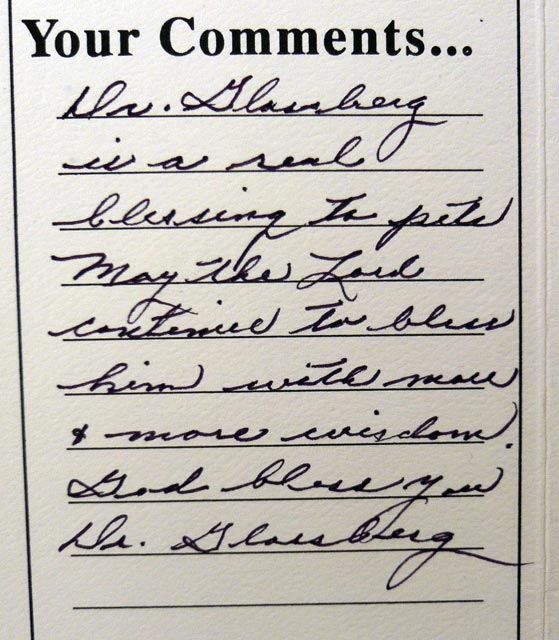 Your Comments...
Dr. Glassberg
is a real
blessing to pets
May the Lord
continue to bless
him with more
& more wisdom.
God bless you
Dr. Glassberg